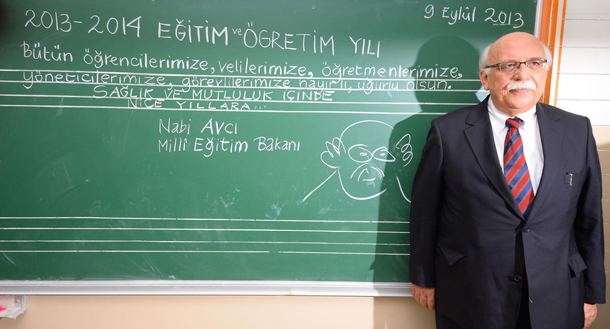 9 Eylül 2013
2013-2014 EĞİTİM ve ÖĞRETİM YILI
Bütün öğrencilerimize, velilerimize, öğretmenlerimize,
yöneticilerimize, görevlilerimize hayırlı, uğurlu olsun.
SAĞLIK VE MUTLULUK İÇİNDE
NİCE YILLARA...
Nabi Avcı
Millî Eğitim Bakanı